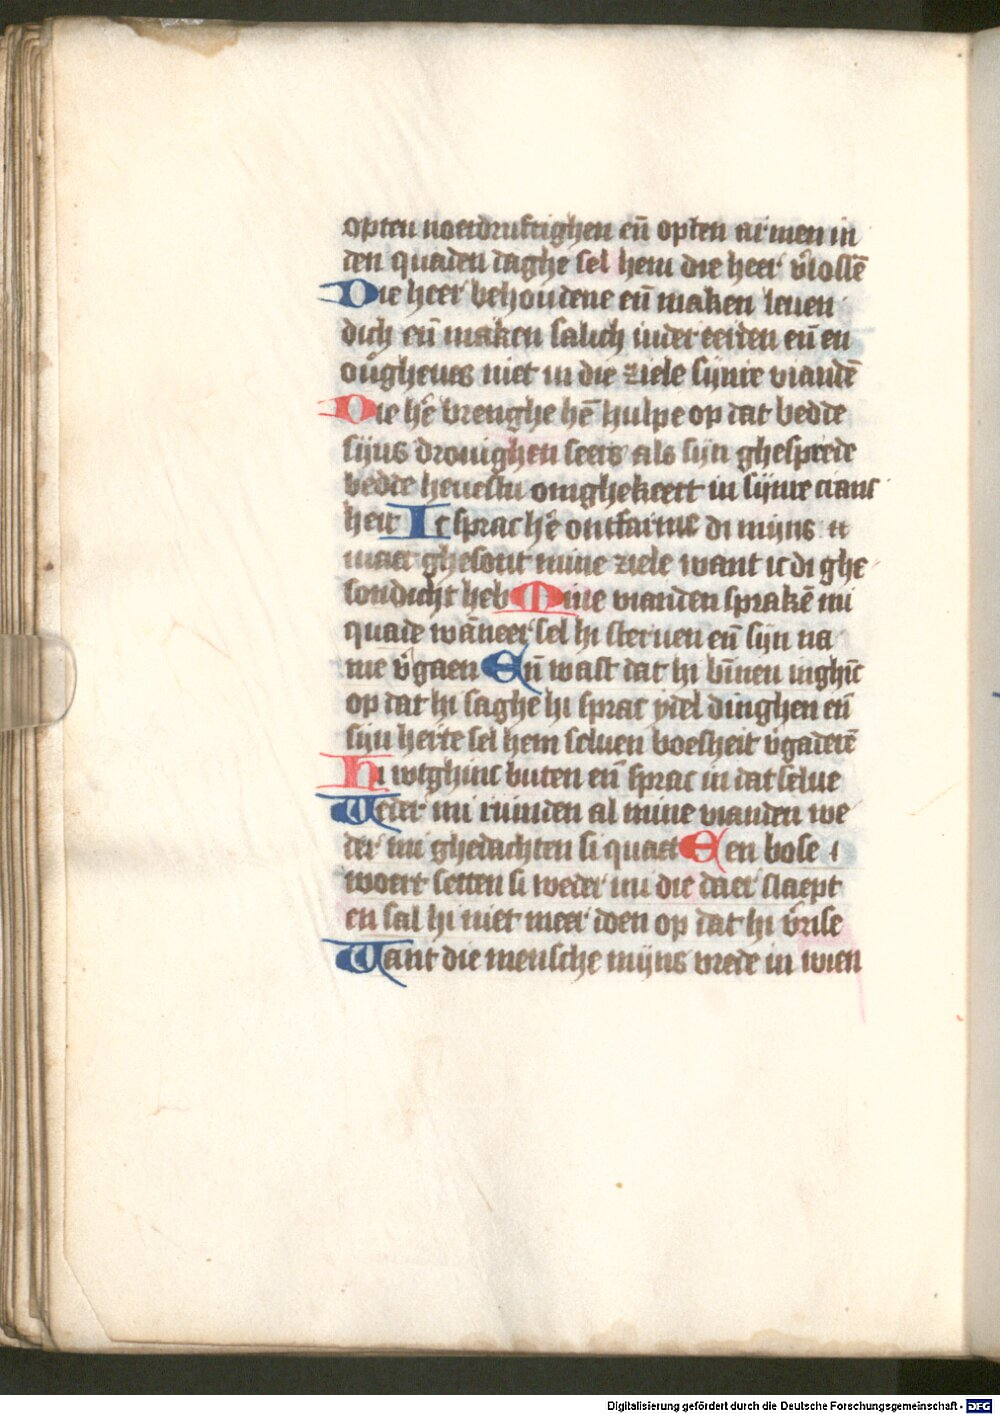 opten noetdruftighen eñ opten armen in
den quaden daghe sel hem die heer v̄lossē
Die heer behoudene eñ maken leuen
dich eñ maken salich inder eerden eñ en
ou̅gheues niet in die ziele sijnre viandē
Die hē brenghe hē hulpe op dat bedde
sijns drouighen seers als sijn ghesprede
bedde heuestu omghekeert in sijnre cranc
heit Ic sprac hē ontfarme di mijns
maec ghesont mine ziele want ic di ghe
sondicht heb Mine vianden sprakē mi
quade wāneer sel hi steruen eñ sijn na
me v̄gaen Eñ wast dat hi bīnen inghīc
op dat hi saghe hi sprac ydel dinghen eñ
sijn herte sel hem seluen boesheit v̄gaderē
Hi wtghinc buten eñ sprac in dat selue
Weder mi rūnden al mine vianden we
der mi ghedachten si quaet Een bose
woert setten si weder mi die daer slaept
en sal hi niet meer doen op dat hi v̄rise
Want die mensche mijns vrede in wien
Digitalisierung gefördert durch die Deutsche Forschungsgemeinschaft - DFG